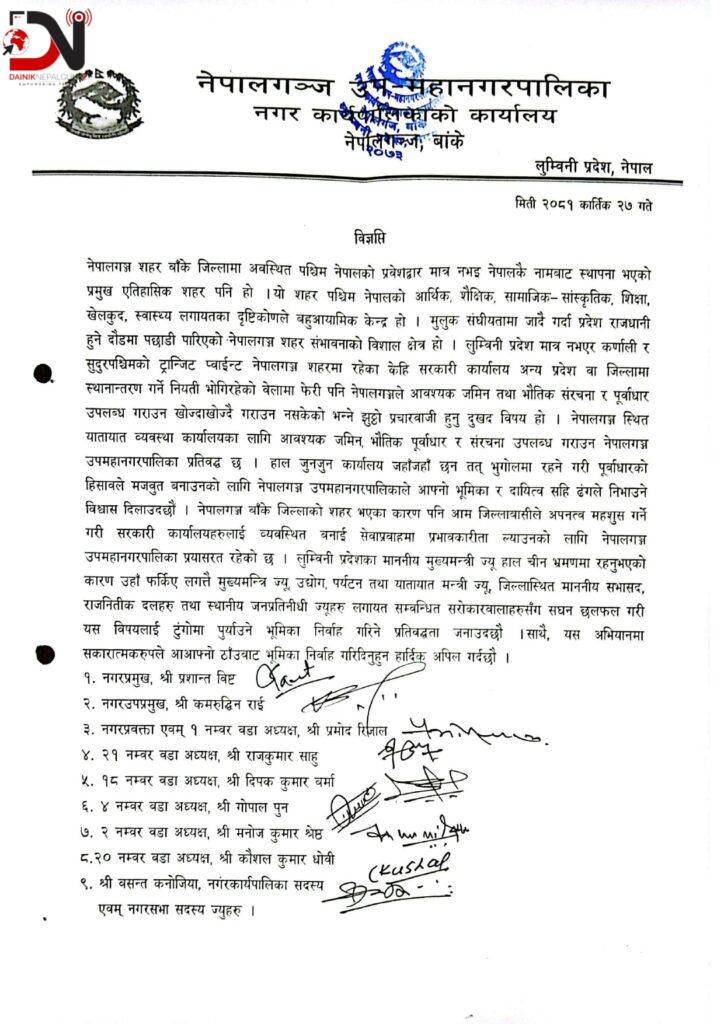 DN
DAINIKNEPALGUNJ
नेपालगञ्ज उप-महानगरपालिका
नगर कार्यपालिकाको कार्यालय
नेपालगञ्ज, बांके
२०७३
लुम्विनी प्रदेश, नेपाल
मिती २०८१ कार्तिक २७ गते
विज्ञप्ति
नेपालगञ्ज शहर बाँके जिल्लामा अवस्थित पश्चिम नेपालको प्रवेशद्वार मात्र नभइ नेपालकै नामबाट स्थापना भएको
प्रमुख एतिहासिक शहर पनि हो ।यो शहर पश्चिम नेपालको आर्थिक, शैक्षिक, सामाजिक- सांस्कृतिक, शिक्षा,
खेलकुद, स्वास्थ्य लगायतका दृष्टिकोणले बहुआयामिक केन्द्र हो । मुलुक संघीयतामा जादै गर्दा प्रदेश राजधानी
हुने दौडमा पछाडी पारिएको नेपालगञ्ज शहर संभावनाको विशाल क्षेत्र हो । लुम्विनी प्रदेश मात्र नभएर कर्णाली र
सुदुरपश्चिमको ट्रान्जिट प्वाईन्ट नेपालगञ्ज शहरमा रहेका केहि सरकारी कार्यालय अन्य प्रदेश वा जिल्लामा
स्थानान्तरण गर्ने नियती भोगिरहेको वेलामा फेरी पनि नेपालगञ्जले आवश्यक जमिन तथा भौतिक संरचना र पूर्वाधार
उपलब्ध गराउन खोज्दाखोज्दै गराउन नसकेको भन्ने झुठ्ठो प्रचारवाजी हुनु दुखद विषय हो । नेपालगञ्ज स्थित
यातायात व्यवस्था कार्यालयका लागि आवश्यक जमिन, भौतिक पूर्वाधार र संरचना उपलब्ध गराउन नेपालगञ्ज
उपमहानगरपालिका प्रतिवद्ध छ । हाल जुनजुन कार्यालय जहाँजहाँ छन तत् भुगोलमा रहने गरी पूर्वाधारको
हिसावले मजवुत बनाउनको लागि नेपालगञ्ज उपमहानगरपालिकाले आफ्नो भूमिका र दायित्व सहि ढंगले निभाउने
विश्वास दिलाउदछौं । नेपालगञ्ज बाँके जिल्लाको शहर भएका कारण पनि आम जिल्लावासीले अपनत्व महशुस गर्ने
गरी सरकारी कार्यालयहरुलाई व्यवस्थित बनाई सेवाप्रवाहमा प्रभावकारीता ल्याउनको लागि नेपालगञ्ज
उपमहानगरपालिका प्रयासरत रहेको छ । लुम्विनी प्रदेशका माननीय मुख्यमन्त्री ज्यू हाल चीन भ्रमणमा रहनुभएको
कारण उहाँ फर्किए लगत्तै मुख्यमन्त्रि ज्यू, उद्योग, पर्यटन तथा यातायात मन्त्री ज्यू, जिल्लास्थित माननीय सभासद,
राजनितीक दलहरु तथा स्थानीय जनप्रतिनीधी ज्यूहरु लगायत सम्वन्धित सरोकारवालाहरुसँग सघन छलफल गरी
यस विषयलाई टुंगोमा पुर्याउने भूमिका निर्वाह गरिने प्रतिवद्धता जनाउदछौं ।साथै, यस अभियानमा
सकारात्मकरुपले आआफ्नो ठाँउबाट भूमिका निर्वाह गरिदिनुहुन हार्दिक अपिल गर्दछौं ।
१. नगरप्रमुख, श्री प्रशान्त विष्ट
२. नगरउपप्रमुख, श्री कमरुद्दिन राई
३. नगरप्रवक्ता एवम् १ नम्वर वडा अध्यक्ष, श्री प्रमोद रिजाल
४. २१ नम्वर वडा अध्यक्ष, श्री राजकुमार साहु
५. १८ नम्वर वडा अध्यक्ष, श्री दिपक कुमार वर्मा
६. ४ नम्वर वडा अध्यक्ष, श्री गोपाल पुन
७. २ नम्वर वडा अध्यक्ष, श्री मनोज कुमार श्रेष्ठ
८.२० नम्वर वडा अध्यक्ष, श्री कौशल कुमार धोवी
Kushal
९. श्री बसन्त कनोजिया, नगरकार्यपालिका सदस्य
एवम् नगरसभा सदस्य ज्युहरु ।